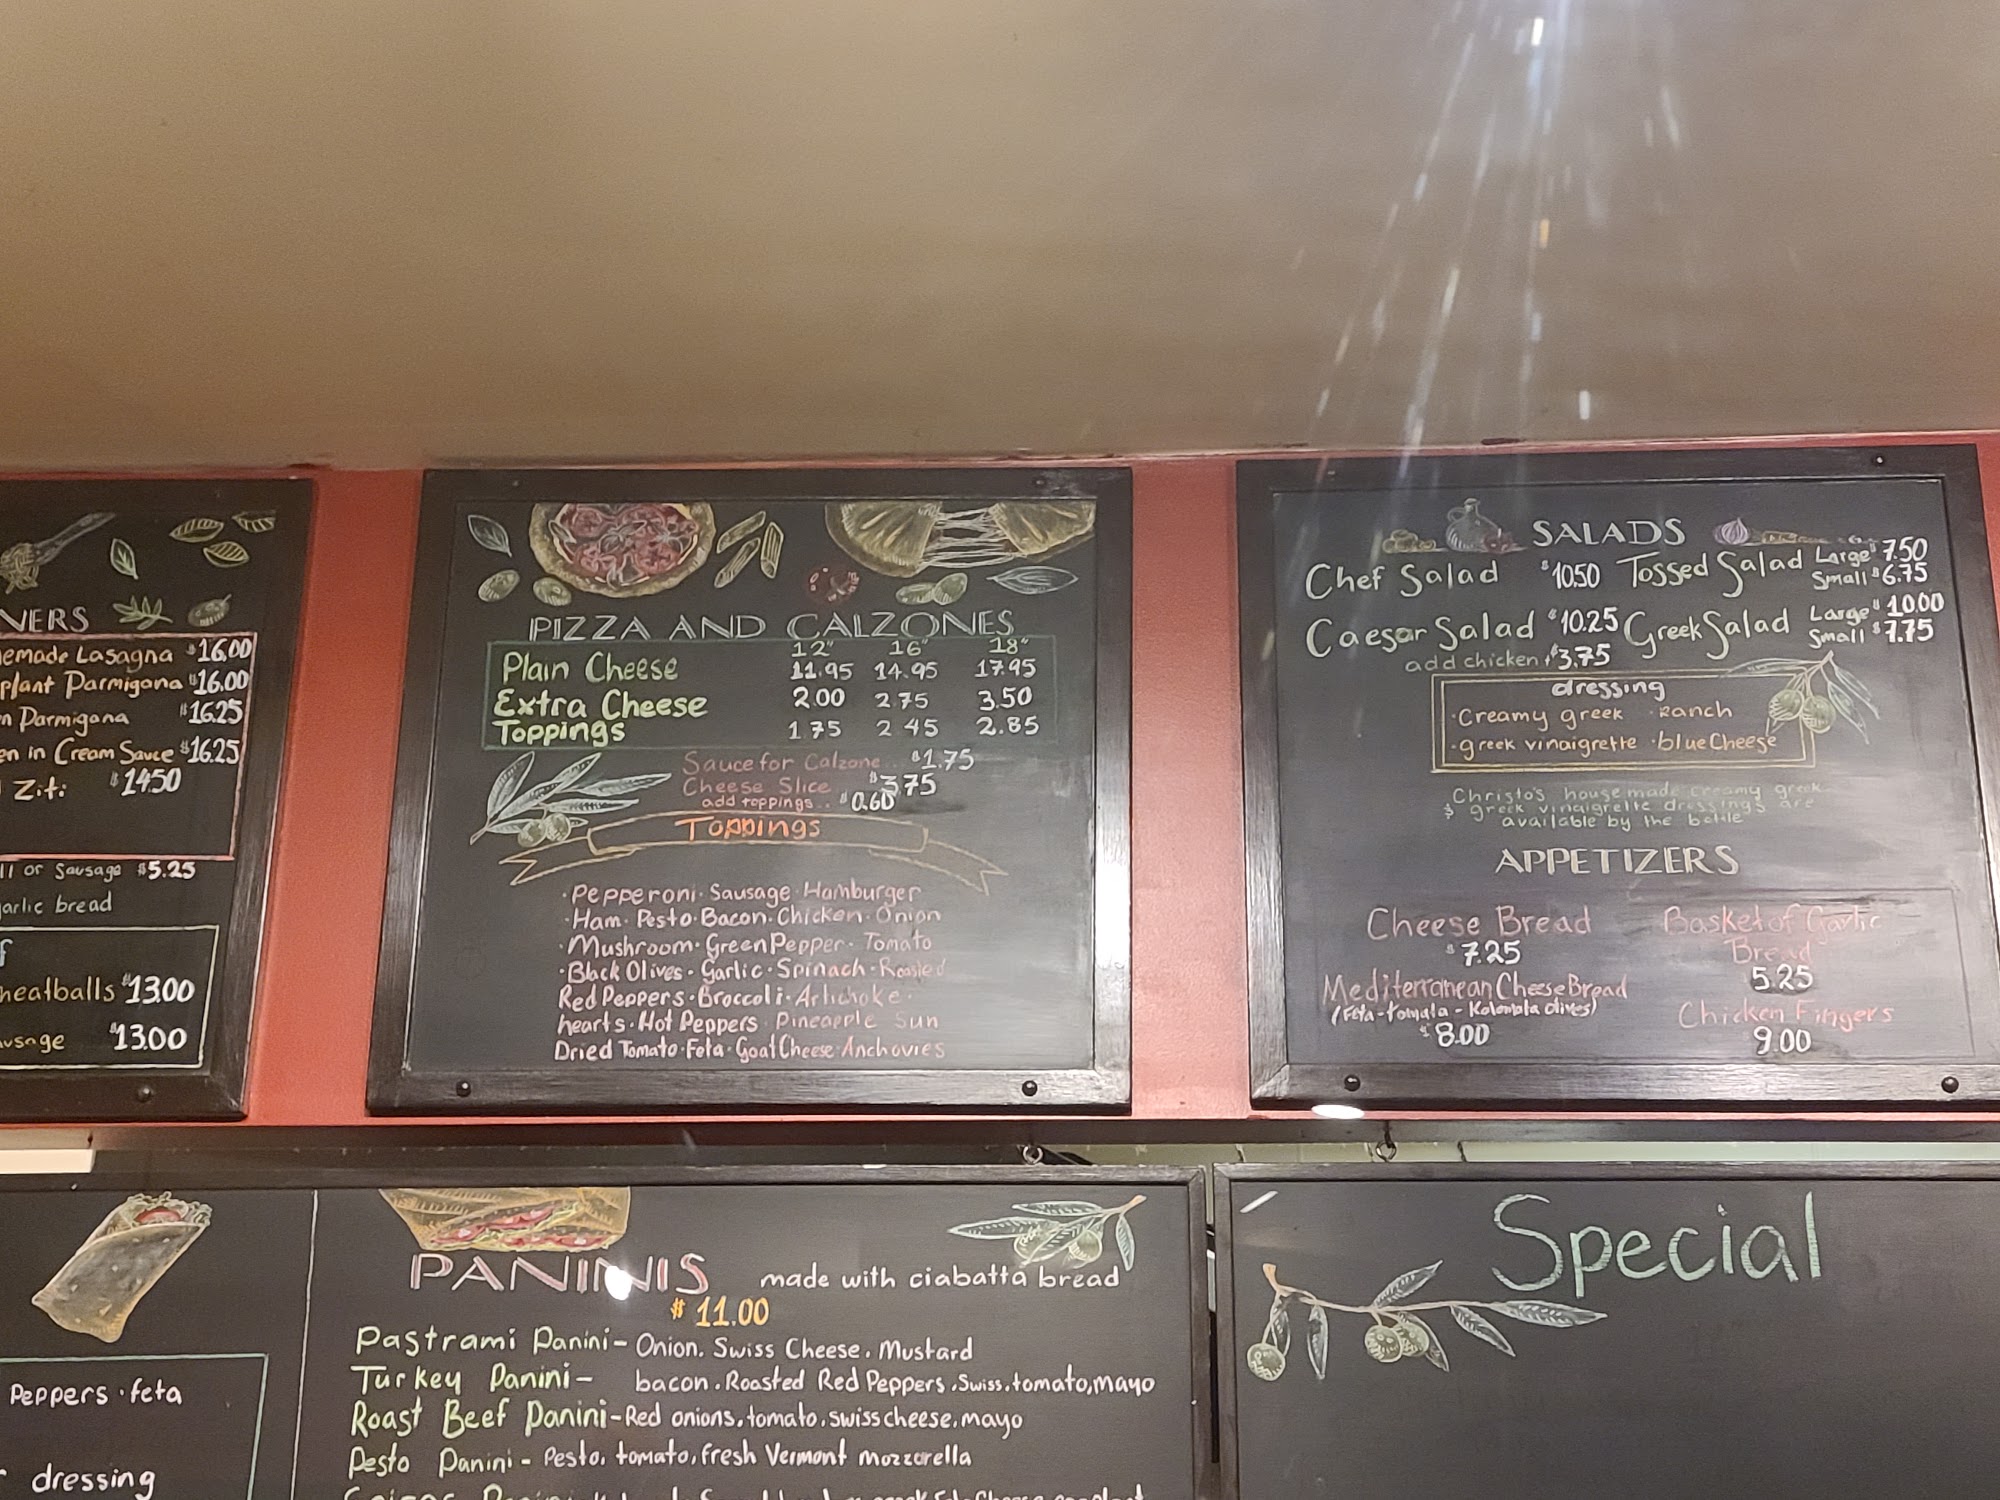 NERS
emade Lasagna $16.00
plant Parmigana $16.00
n Parmigana $16.25
en in Cream Sauce $16.25
Ziti $14.50
ll or Sausage $5.25
arlic bread
f
meatballs $13.00
usage $13.00
PIZZA AND CALZONES
12" 16" 18"
Plain Cheese 11.95 14.95 17.95
Extra Cheese 2.00 2.75 3.50
Toppings 1.75 2.45 2.85
Sauce for Calzone.. $1.75
Cheese Slice $3.75
add toppings.. $0.60
Toppings
·Pepperoni·Sausage·Hamburger
·Ham·Pesto·Bacon·Chicken·Onion
·Mushroom·Green Pepper·Tomato
·Black Olives·Garlic·Spinach·Roasted
Red Peppers·Broccoli·Artichoke·
hearts·Hot Peppers·Pineapple Sun
Dried Tomato·Feta·Goat Cheese·Anchovies
SALADS
Chef Salad $10.50 Tossed Salad Large $7.50
Small $6.75
Caesar Salad $10.25 Greek Salad Large $10.00
Small $7.75
add chicken + $3.75
dressing
·Creamy greek ·Ranch
·greek vinaigrette ·blue Cheese
Christo's housemade creamy greek
$ greek vinaigrette dressings are
available by the bottle
APPETIZERS
Cheese Bread
$7.25
Basket of Garlic
Bread
5.25
Mediterranean Cheese Bread
(Feta-tomata-Kalamata olives)
$8.00
Chicken Fingers
9.00
Peppers·feta
dressing
PANINIS made with ciabatta bread
$11.00
Pastrami Panini- Onion. Swiss Cheese. Mustard
Turkey Panini- bacon.Roasted Red Peppers.Swiss.tomato,mayo
Roast Beef Panini-Red onions.tomato.swiss cheese.mayo
Pesto Panini- Pesto. tomato,fresh Vermont mozzarella
Special